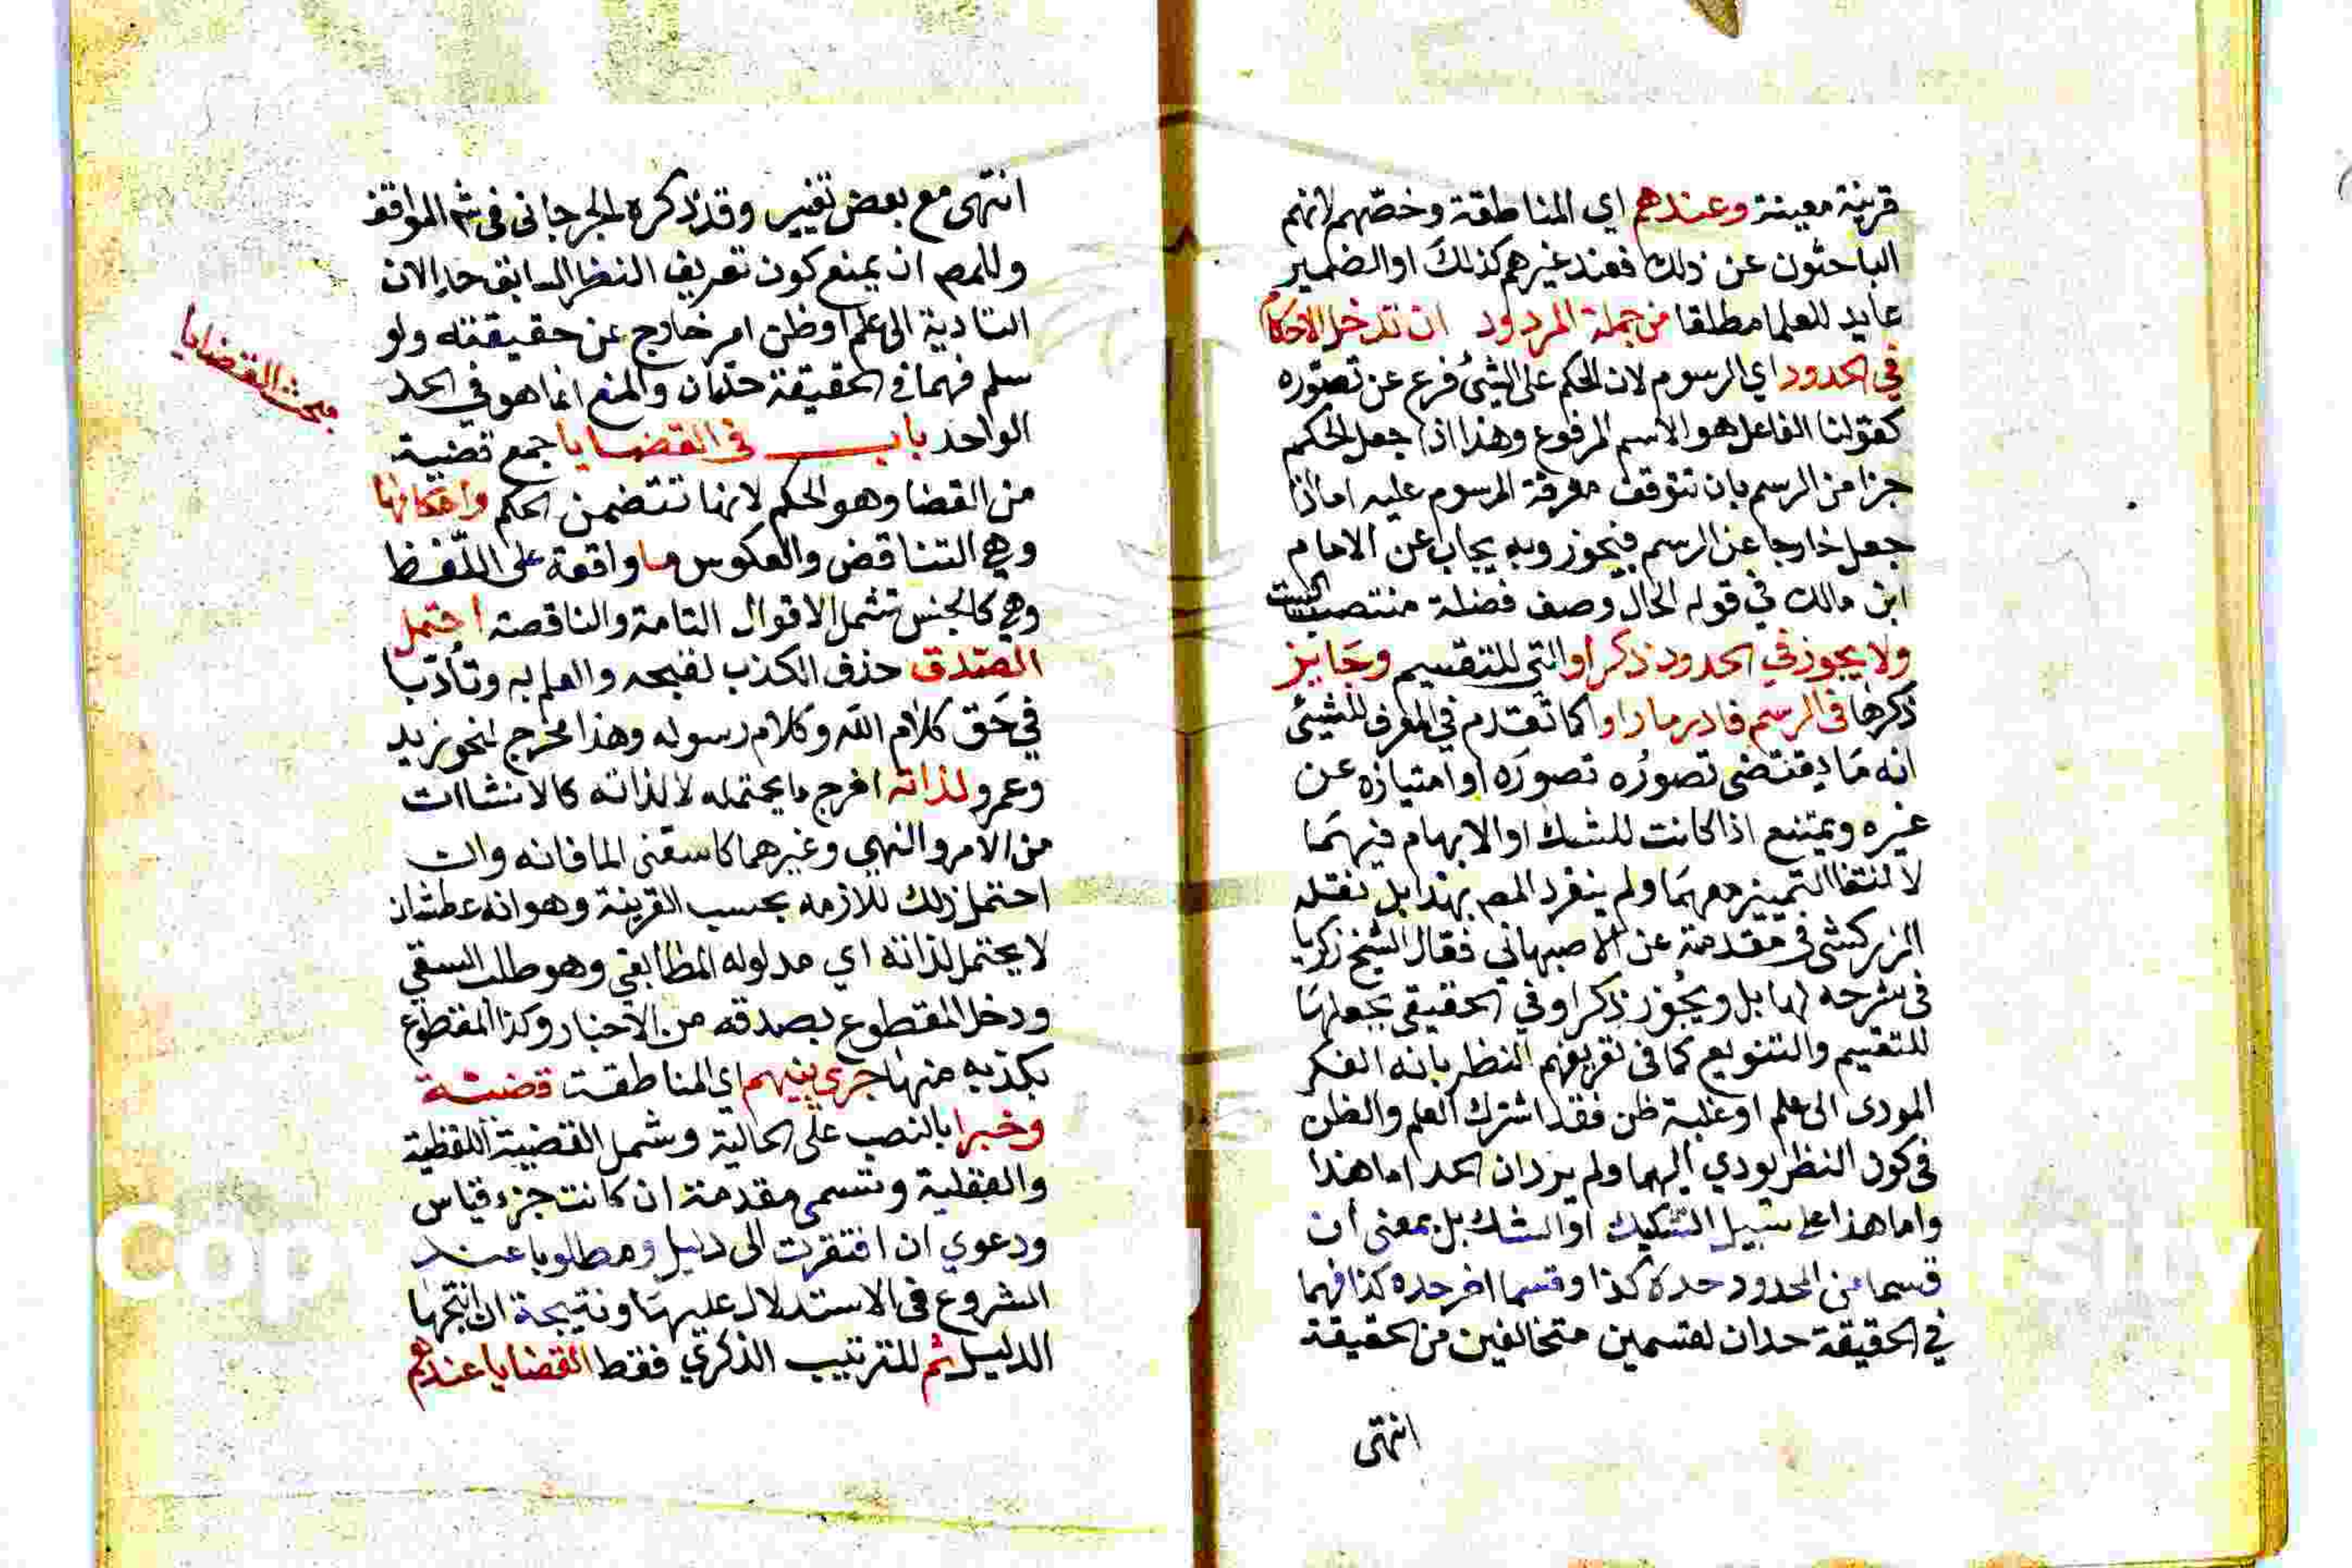 قرينة معينة وعندهم اي المناطقة وخصّهم لانهم
الباحثون عن ذلك فعند غيرهم كذلك او الضمير
عايد للعلما مطلقا من جملة المردود ان تدخل الاحكام
في الحدود اي الرسوم لان الحكم على الشئ فرع عن تصوره
كقولنا الفاعل هو الاسم المرفوع وهذا اذا جعل الحكم
جزا من الرسم بان تتوقف معرفة المرسوم عليه اما اذا
جعل خارجا عن الرسم فيجوز وبه يجاب عن الامام
ابن مالك في قوله الحال وصف فضلة منتصب البيت
ولا يجوز في الحدود ذكر او التي للتقسيم وجايز
ذكرها في الرسم فادر ما رووا كما تقدم في المعرف للشيئ
انه ما يقتضى تصوره تصوره او امتيازه عن
غيره ويمتنع اذا كانت للشك او الابهام فيهما
لانتفا التمييز معهما ولم ينفرد المص بهذا بل نقله
الزركشى في مقدمة عن الاصبهاني فقال الشيخ زكريا
في شرحه لها بل ويجوز ذكر او في الحقيقي بجعلها
للتقسيم والتنويع كما في تعريفهم النظر بانه الفكر
المودى الى علم او غلبة ظن فقد اشترك العلم والظن
في كون النظر يودي اليهما ولم يرد ان الحد اما هذا
واما هذا على سبيل التشكيك او الشك بل بمعنى ان
قسما من المحدود حده كذا وقسما اخر حده كذا فهما
في الحقيقة حدان لقسمين متخالفين من الحقيقة
انتهى
انتهى مع بعض تغيير وقد ذكره الجرجاني في شر المواقف
وللمص ان يمنع كون تعريف النظر السابق حدا لان
التادية الى علم او ظن امر خارج عن حقيقته ولو
سلم فهما في الحقيقة حدان والمنع انما هو في الحد
الواحد باب في القضايا جمع قضية
من القضا وهو الحكم لانها تتضمن الحكم واحكامها
وهي التناقض والعكوس ما واقعة على اللفظ
وهي كالجنس تشمل الاقوال التامة والناقصة احتمل
الصدق حذف الكذب لقبحه والعلم به وتأدبا
في حق كلام الله وكلام رسوله وهذا مخرج لنحو زيد
وعمرو لذاته اخرج ما يحتمله لا لذاته كالانشاات
من الامر والنهي وغيرهما كاسقني الما فانه وان
احتمل ذلك للازمه بحسب القرينة وهو انه عطشان
لا يحتمل لذاته اي مدلوله المطابقي وهو طلب السقي
ودخل المقطوع بصدقه من الاخبار وكذا المقطوع
بكذبه منها جرى بينهم اي المناطقة قضية
وخبرا بالنصب على الحالية وشمل القضية اللفظية
والعقلية وتسمى مقدمة ان كانت جزء قياس
ودعوي ان افتقرت الى دليل ومطلوبا عند
الشروع في الاستدلال عليها ونتيجة ان انتجها
الدليل ثم للترتيب الذكري فقط القضايا عندهم
مبحث القضايا